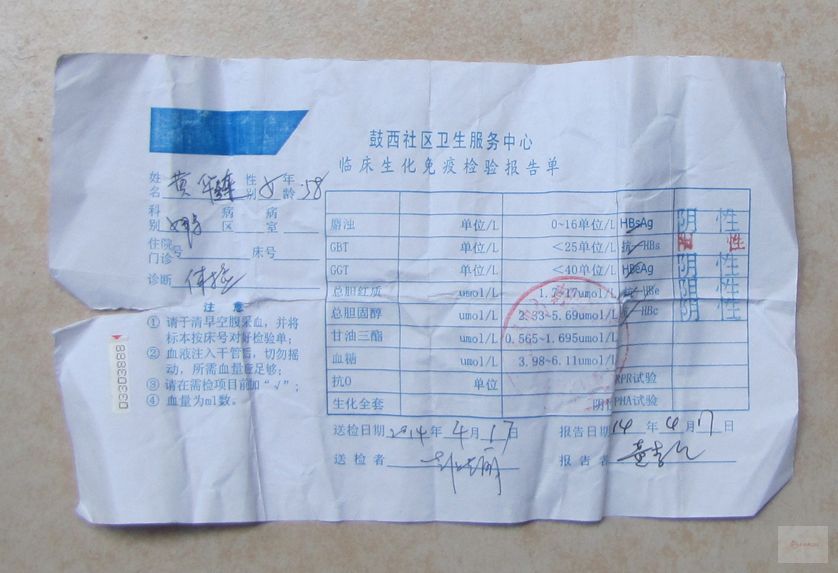 鼓西社区卫生服务中心
临床生化免疫检验报告单
姓名 黄华 性别 女 年龄 58
科别 病区 病室
住院门诊号 床号
诊断 体检
注意
① 请于清早空腹采血,并将
标本按床号对好检验单;
② 血液注入干管后,切勿摇
动,所需血量应足够;
③ 请在需检项目前加“√”;
④ 血量为ml数。
03303888
麝浊 单位/L 0~16单位/L HBsAg 阴性
GBT 单位/L <25单位/L 抗-HBs 阳性
GGT 单位/L <40单位/L HBeAg 阴性
总胆红质 umol/L 1.7~17umol/L 抗-HBe 阴性
总胆固醇 umol/L 2.33~5.69umol/L 抗-HBc 阴性
甘油三酯 umol/L 0.565~1.695umol/L
血糖 umol/L 3.98~6.11umol/L
抗O 单位 RPR试验
生化全套 阴性 PHA试验
送检日期 2014年4月17日 报告日期 14年4月17日
送检者 报告者